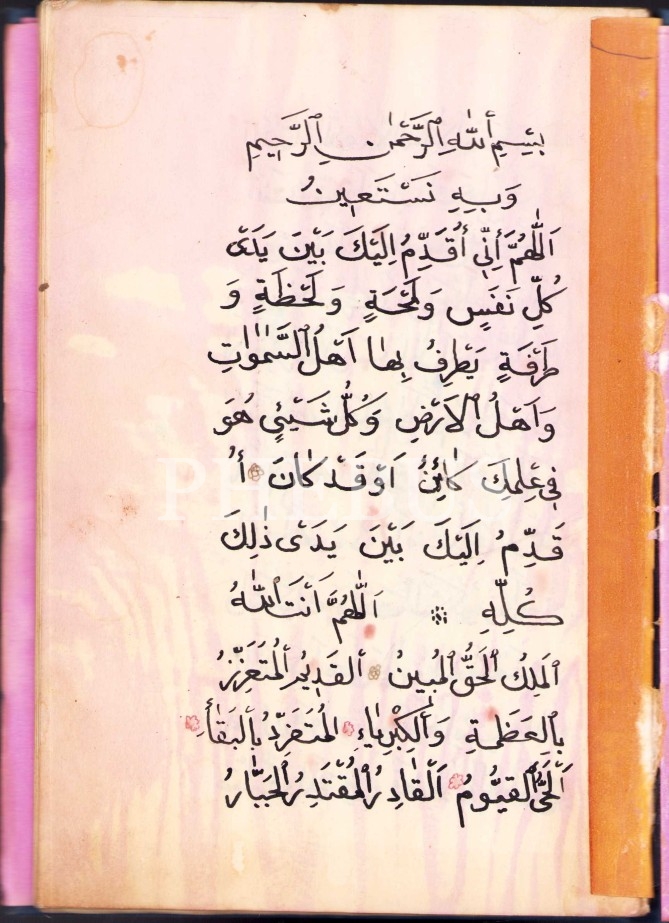 بِسْمِ اللهِ الرَّحْمٰنِ الرَّحِيمِ
وَبِهِ نَسْتَعِينُ
اَللّٰهُمَّ أَنِّي أُقَدِّمُ اِلَيْكَ بَيْنَ يَدَىْ
كُلِّ نَفَسٍ وَلَمْحَةٍ وَلَحْظَةٍ وَ
طَرْفَةٍ يَطْرِفُ بِهَا اَهْلُ السَّمٰوٰاتِ
وَاَهْلُ الْاَرْضِ وَكُلُّ شَيْئٍ هُوَ
فِى عِلْمِكَ كَائِنٌ اَوْ قَدْ كَانَ أُ
قَدِّمُ اِلَيْكَ بَيْنَ يَدَىْ ذٰلِكَ
كُلِّهِ اَللّٰهُمَّ اَنْتَ اللهُ
اَلْمَلِكُ الْحَقُّ الْمُبِينُ اَلقَدِيمُ الْمُتَعَزِّزُ
بِالْعَظَمَةِ وَالْكِبْرِيَاءِ الْمُتَفَرِّدُ بِالْبَقَاءِ
اَلْحَىُّ الْقَيُّومُ اَلْقَادِرُ الْمُقْتَدِرُ الْجَبَّارُ